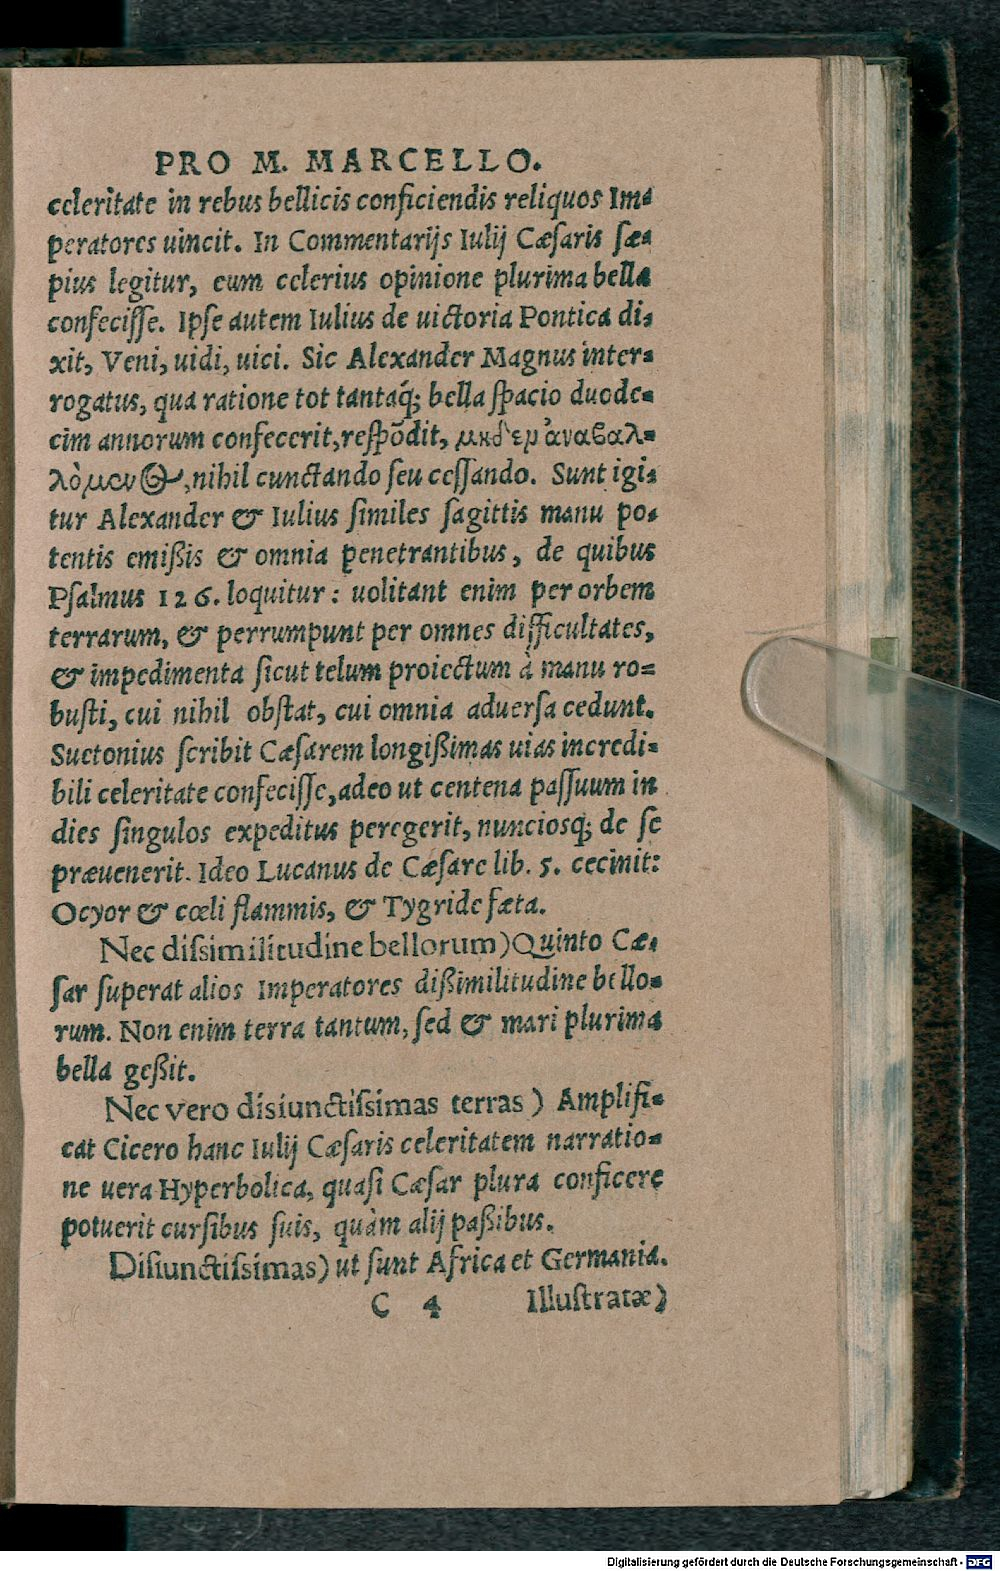 PRO M. MARCELLO.
celeritate in rebus bellicis conficiendis reliquos Im-
peratores uincit. In Commentarijs Iulij Cæsaris sæ-
pius legitur, eum celerius opinione plurima bella
confecisse. Ipse autem Iulius de uictoria Pontica di-
xit, Veni, uidi, uici. Sic Alexander Magnus inter-
rogatus, qua ratione tot tantaq́; bella spacio duode-
cim annorum confecerit, respõdit, μηδὲν ἀναβαλ-
λόμενος, nihil cunctando seu cessando. Sunt igi-
tur Alexander & Iulius similes sagittis manu po-
tentis emißis & omnia penetrantibus, de quibus
Psalmus 126. loquitur: uolitant enim per orbem
terrarum, & perrumpunt per omnes difficultates,
& impedimenta sicut telum proiectum à manu ro-
busti, cui nihil obstat, cui omnia aduersa cedunt.
Suetonius scribit Cæsarem longißimas uias incredi-
bili celeritate confecisse, adeo ut centena passuum in
dies singulos expeditus peregerit, nunciosq́; de se
præuenerit. Ideo Lucanus de Cæsare lib. 5. cecinit:
Ocyor & cœli flammis, & Tygride fæta.
Nec dissimilitudine bellorum) Quinto Cæ-
sar superat alios Imperatores dißimilitudine bello-
rum. Non enim terra tantum, sed & mari plurima
bella geßit.
Nec vero disiunctissimas terras) Amplifi-
cat Cicero hanc Iulij Cæsaris celeritatem narratio-
ne uera Hyperbolica, quasi Cæsar plura conficere
potuerit cursibus suis, quàm alij paßibus.
Disiunctissimas) ut sunt Africa et Germania.
C 4 Illustratæ)
Digitalisierung gefördert durch die Deutsche Forschungsgemeinschaft - DFG